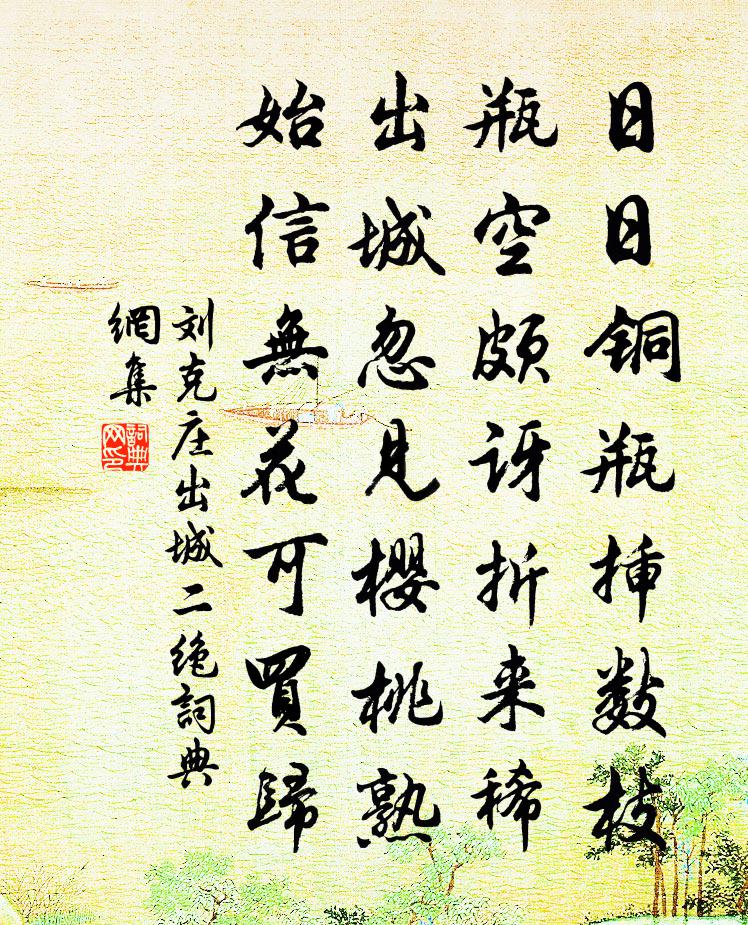 日日铜瓶揷数枝
瓶空颇讶折来稀
出城忽見櫻桃熟
始信無花可買歸
刘克庄出城二绝詞典
網集
詞典
网印